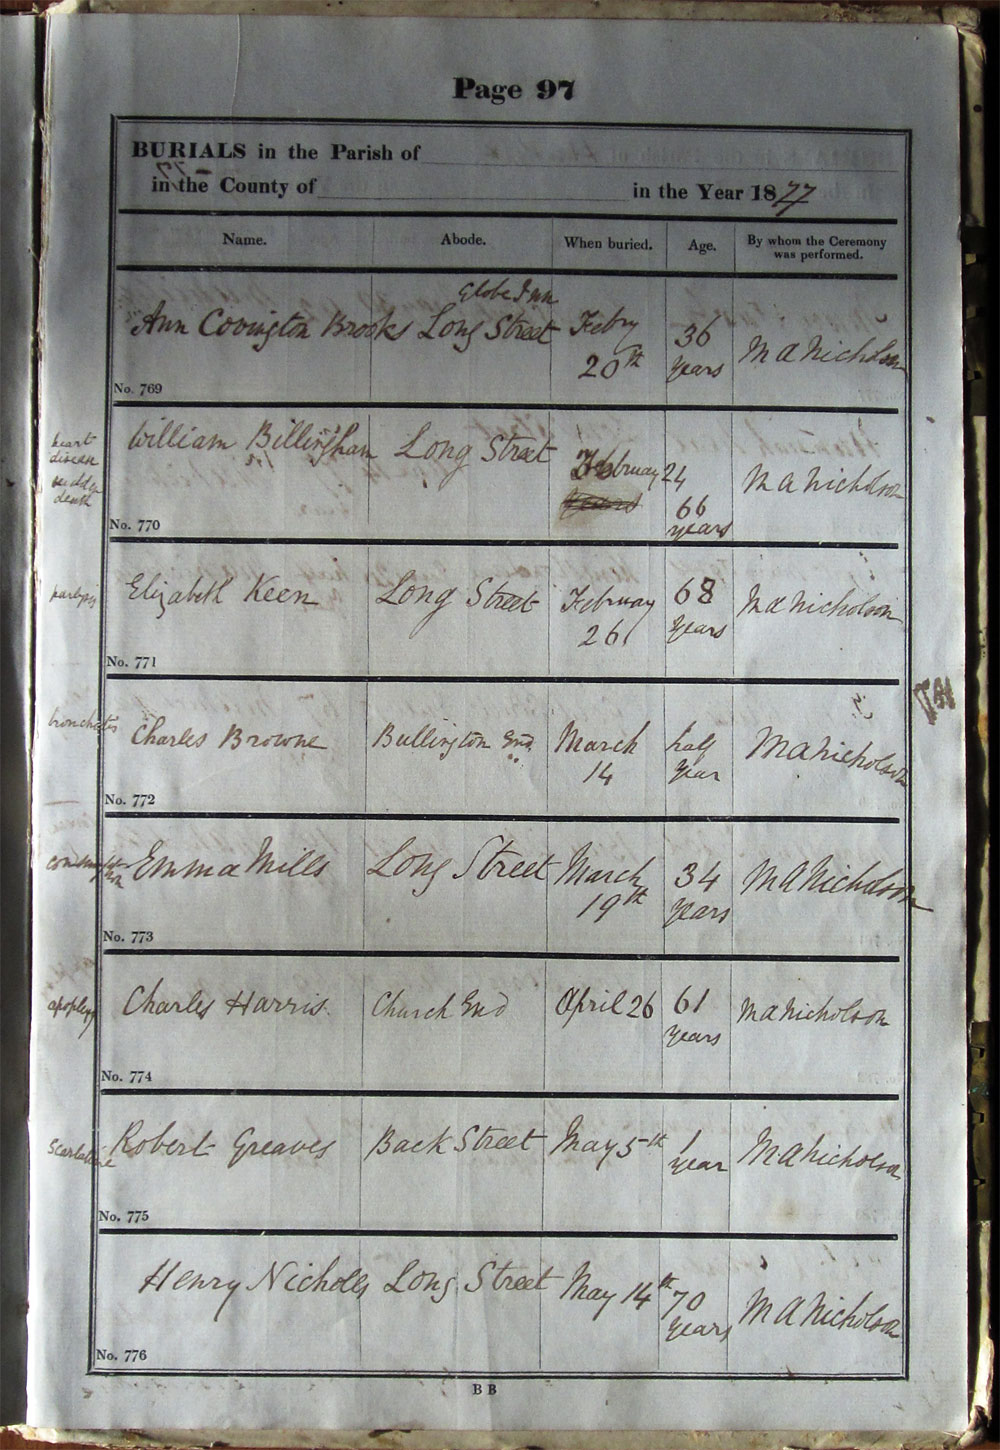 Page 97
BURIALS in the Parish of
in the County of in the Year 1877
Name. Abode. When buried. Age. By whom the Ceremony was performed.
Globe Inn
Ann Covington Brooks Long Street Febry 20th 36 years M A Nicholson
No. 769
heart
disease
death
William Billingham Long Street February 24 66 years M A Nicholson
No. 770
Elizabeth Keen Long Street February 26 68 years M A Nicholson
No. 771
bronchitis
Charles Browne Bullington End. March 14 half year M A Nicholson
No. 772
Emma Mills Long Street March 19th 34 years M A Nicholson
No. 773
apoplexy
Charles Harris Church End April 26 61 years M A Nicholson
No. 774
Scarlatine
Robert Greaves Back Street May 5th 1 year M A Nicholson
No. 775
Henry Nicholls Long Street May 14th 70 years M A Nicholson
No. 776
B B